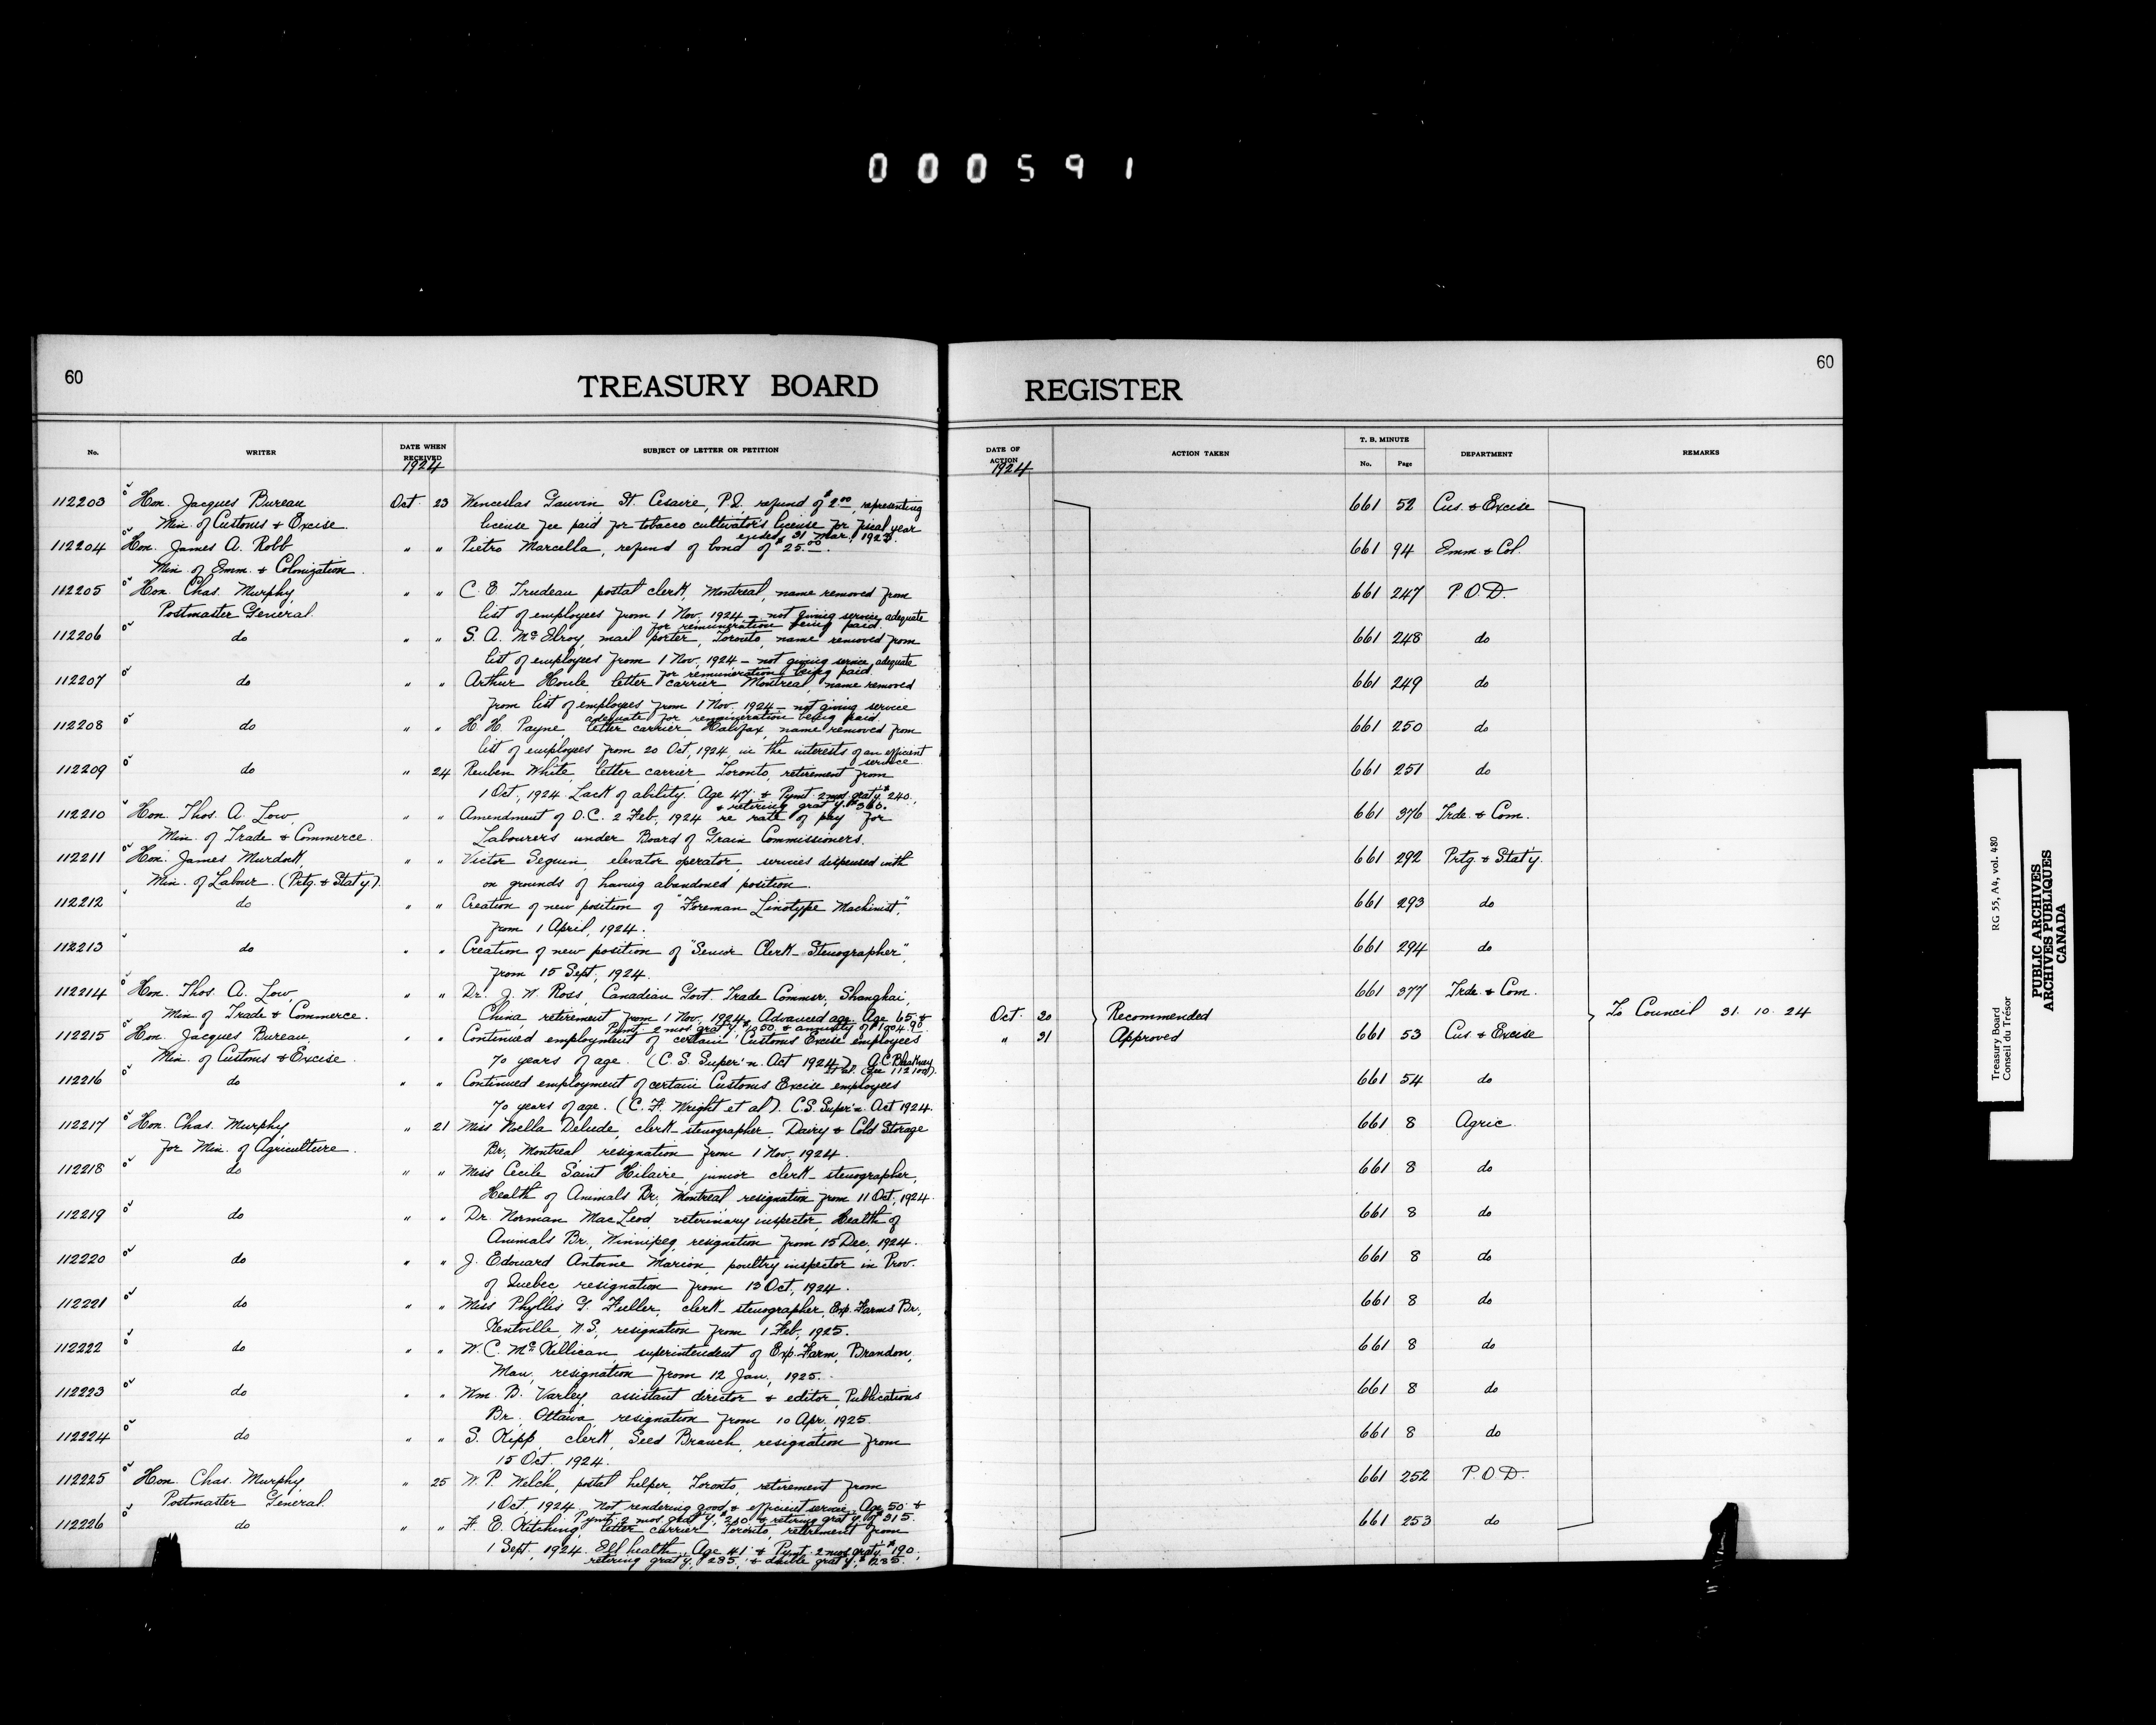 000591
60
TREASURY BOARD
REGISTER
60
No.
WRITER
DATE WHEN
RECEIVED
1924
SUBJECT OF LETTER OR PETITION
DATE OF
ACTION
1924
ACTION TAKEN
T. B. MINUTE
No.
Page
DEPARTMENT
REMARKS
112203 Hon. Jacques Bureau Oct 23 Wenceslas Gauvin St. Cesaire, P.Q. refund of $2.00, representing 661 52 Cus. & Excise
Min. of Customs & Excise. license fee paid for tobacco cultivator's license for fiscal year
ended 31 Mar. 1925.
112204 Hon. James A. Robb " " Pietro Marcella, refund of bond of $25.00. 661 94 Imm. & Col.
Min. of Imm. & Colonization.
112205 Hon. Chas. Murphy, " " C. E. Trudeau postal clerk, Montreal, name removed from 661 247 P.O.D.
Postmaster General. list of employees from 1 Nov. 1924 – not giving service adequate
for remuneration being paid.
112206 do " " S. A. McElroy, mail porter, Toronto, name removed from 661 248 do
list of employees from 1 Nov. 1924 – not giving service adequate
for remuneration being paid.
112207 do " " Arthur Houle letter carrier Montreal, name removed 661 249 do
from list of employees from 1 Nov. 1924 – not giving service
adequate for remuneration being paid.
112208 do " " H. H. Payne, letter carrier, Halifax, name removed from 661 250 do
list of employees from 20 Oct, 1924, in the interests of an efficient
service.
112209 do " 24 Reuben White, letter carrier, Toronto, retirement from 661 251 do
1 Oct, 1924. Lack of ability. Age 47. & Pymt. 2 mos. grat'y. $240.
& retiring grat'y. $360.
112210 Hon. Thos. A. Low, " " Amendment of O.C. 2 Feb, 1924 re rate of pay for 661 376 Trde. & Com.
Min. of Trade & Commerce. Labourers under Board of Grain Commissioners.
112211 Hon. James Murdock, " " Victor Seguin, elevator operator, services dispensed with 661 292 Prtg. & Stat'y.
Min. of Labour. (Prtg. & Stat'y). on grounds of having abandoned position.
112212 do " " Creation of new position of "Foreman Linotype Machinist", 661 293 do
from 1 April, 1924.
112213 do " " Creation of new position of "Senior Clerk-Stenographer", 661 294 do
from 15 Sept, 1924.
112214 Hon. Thos. A. Low, " " Dr. J. W. Ross, Canadian Govt. Trade Commsr, Shanghai, 661 377 Trde. & Com.
Min. of Trade & Commerce. China, retirement from 1 Nov. 1924. Advanced age. Age 65 &
Pymt. 2 mos. grat'y.
Oct. 20 Recommended
To Council 31. 10. 24
112215 Hon. Jacques Bureau, " " Continued employment of certain Customs Excise employees " 31 Approved 661 53 Cus. & Excise
Min. of Customs & Excise. 70 years of age. (C. S. Super'n. Act 1924)
112216 do " " Continued employment of certain Customs Excise employees 661 54 do
70 years of age. (C. F. Wright et al). C.S. Super'n. Act 1924.
112217 Hon. Chas. Murphy, " 21 Miss Noella Delude, clerk-stenographer, Dairy & Cold Storage 661 8 Agric.
for Min. of Agriculture. Br, Montreal, resignation from 1 Nov. 1924.
112218 do " " Miss Cecile Saint Hilaire, junior clerk-stenographer, 661 8 do
Health of Animals Br. Montreal resignation from 11 Oct, 1924.
112219 do " " Dr. Norman MacLeod, veterinary inspector, Health of 661 8 do
Animals Br., Winnipeg, resignation from 15 Dec, 1924.
112220 do " " J. Edouard Antoine Marion, poultry inspector in Prov. 661 8 do
of Quebec, resignation from 13 Oct, 1924.
112221 do " " Miss Phyllis G. Fuller, clerk-stenographer, Exp. Farms Br., 661 8 do
Kentville, N.S, resignation from 1 Feb, 1925.
112222 do " " W. C. McKillican, superintendent of Exp. Farm, Brandon, 661 8 do
Man, resignation from 12 Jan, 1925.
112223 do " " Wm. B. Varley, assistant director & editor, Publications 661 8 do
Br. Ottawa, resignation from 10 Apr, 1925.
112224 do " " S. Kipp, clerk, Seed Branch, resignation from 661 8 do
15 Oct, 1924.
112225 Hon. Chas. Murphy, " 25 W. P. Welch, postal helper, Toronto, retirement from 661 252 P.O.D.
Postmaster General. 1 Oct. 1924. Not rendering good & efficient service. Age 50 &
Pymt. 2 mos. grat'y. $210 & retiring grat'y. of $315.
112226 do " " F. E. Kitching, letter carrier Toronto, retirement from 661 253 do
1 Sept, 1924. Ill health. Age 41 & Pymt. 2 mos. grat'y. $190,
retiring grat'y. $285, & double grat'y. $285.
Treasury Board RG 55, A4, vol. 480
Conseil du Trésor
PUBLIC ARCHIVES
ARCHIVES PUBLIQUES
CANADA